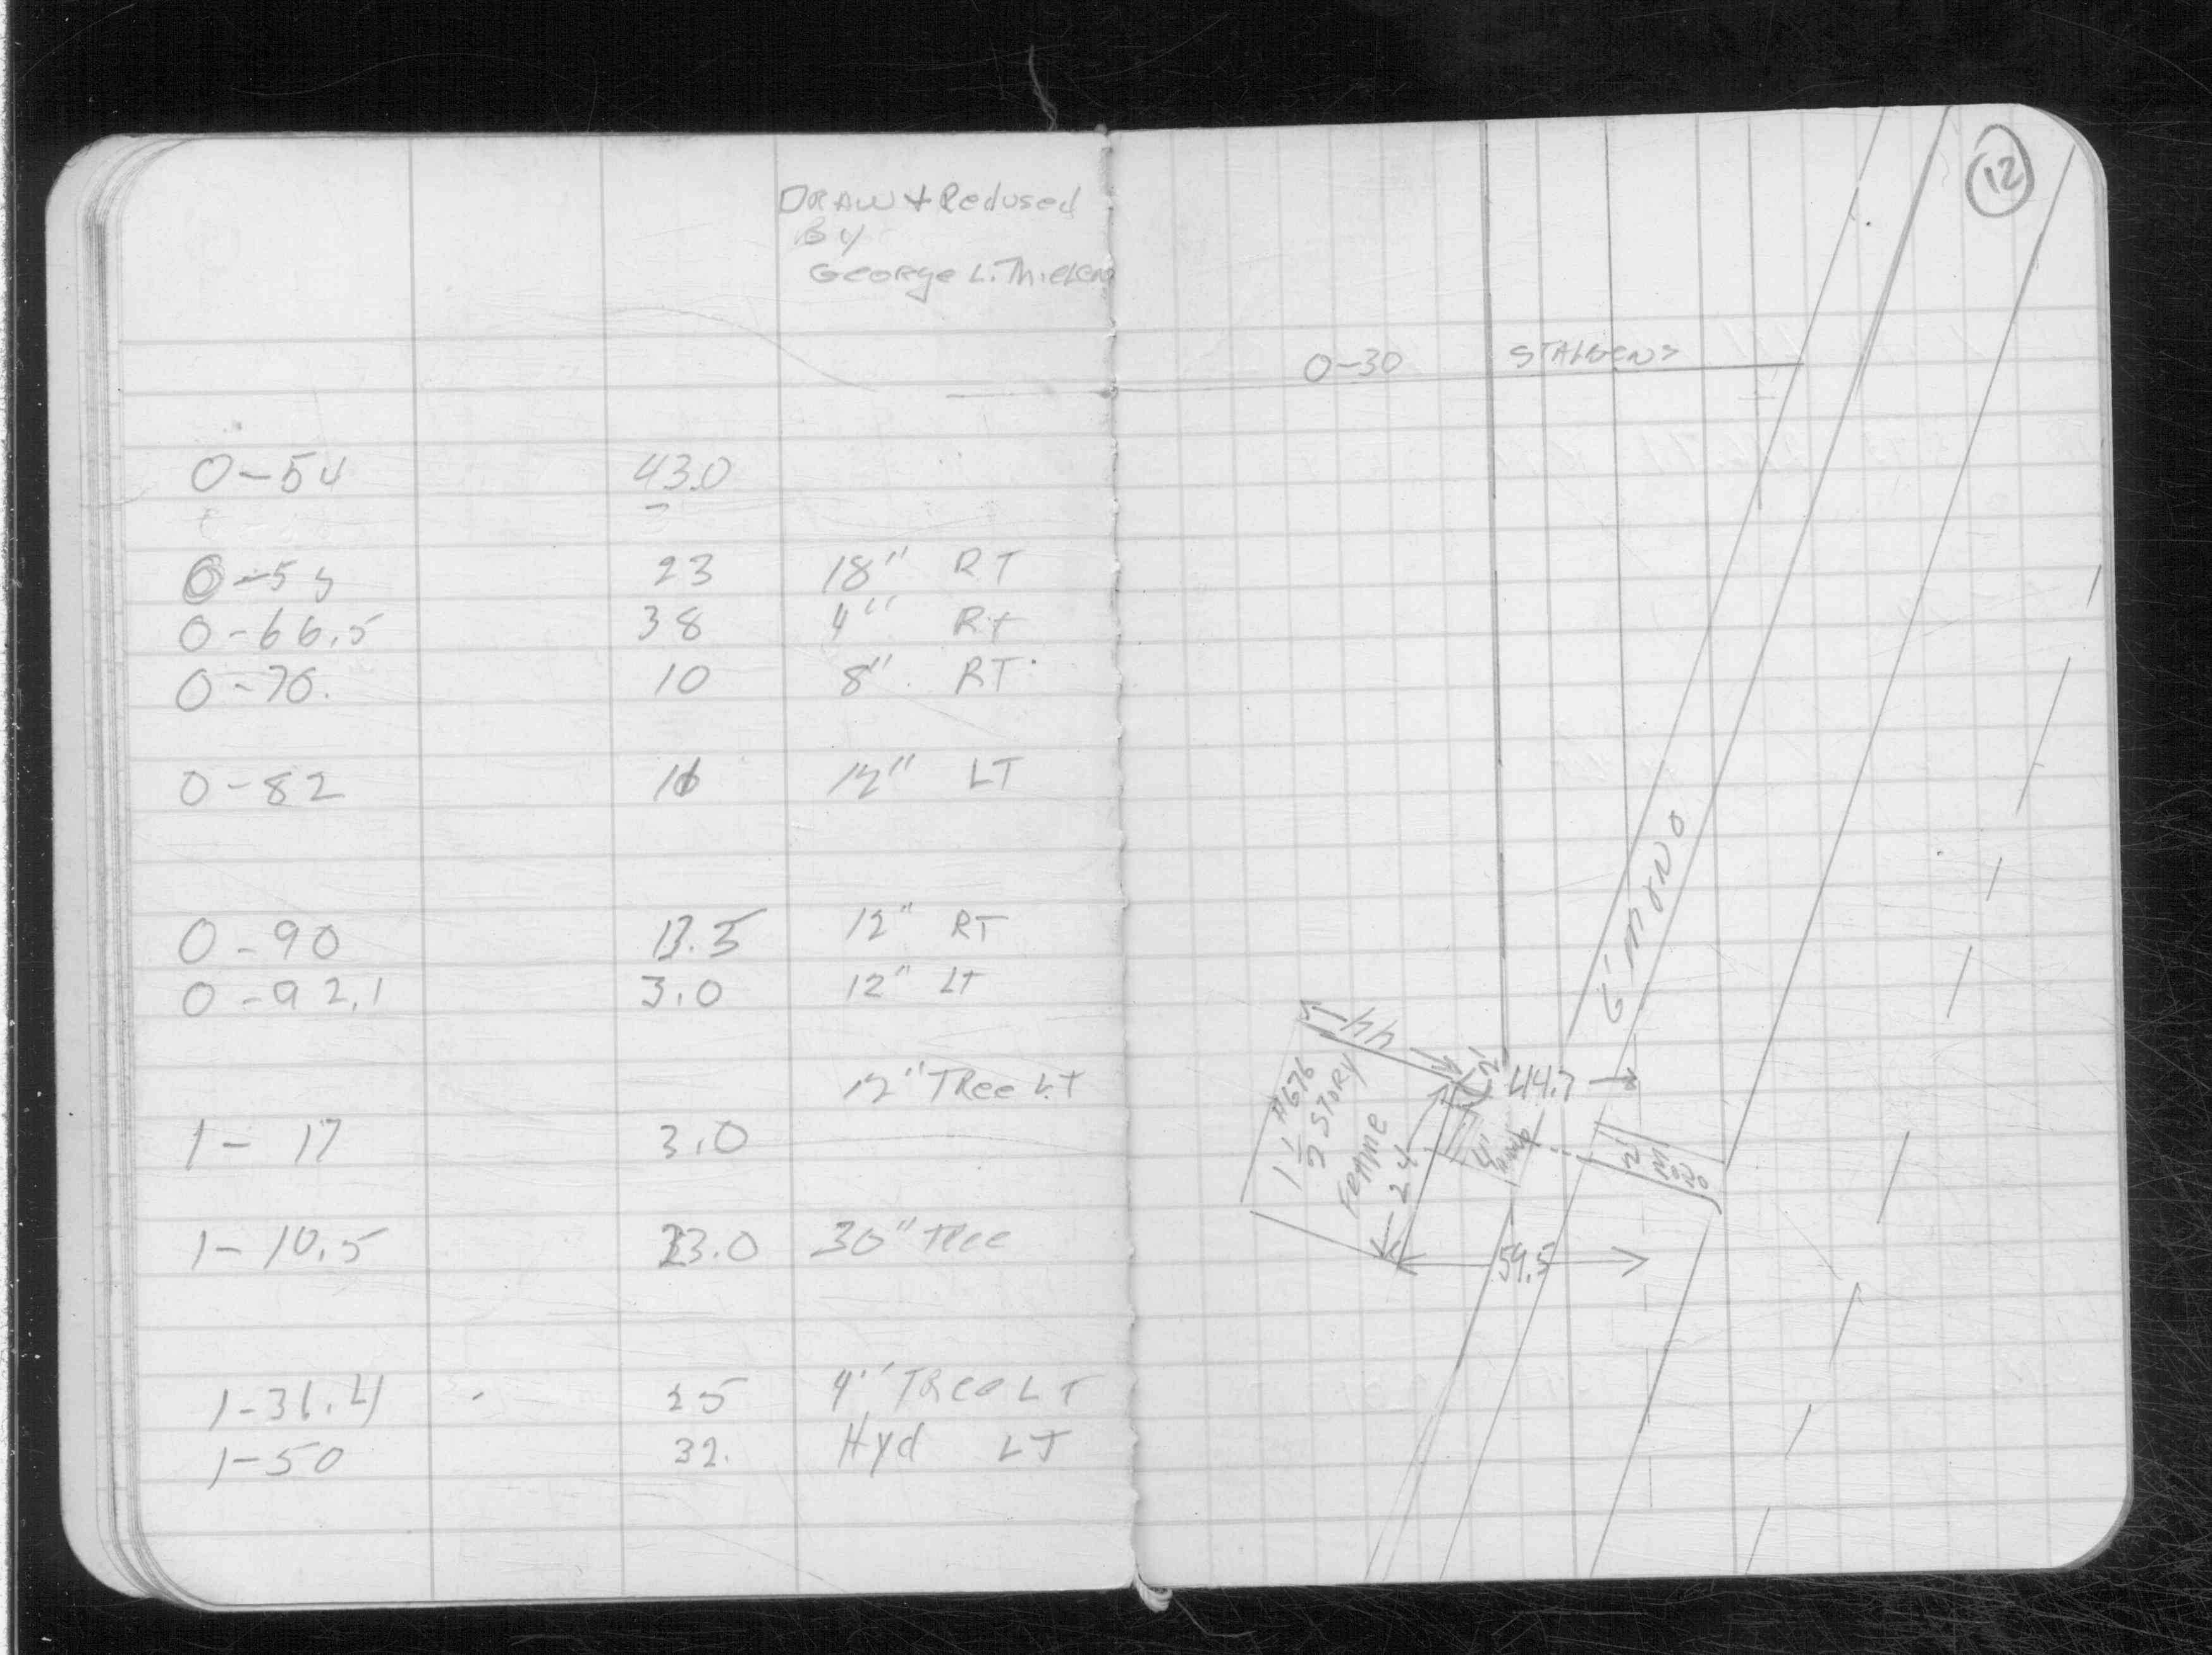 DRAW + Redused
By
George L. Thielen
0-54 43.0
0-55 23 18" RT
0-66.5 38 4" Rt
0-70. 10 8" RT
0-82 16 12" LT
0-90 13.5 12" RT
0-92.1 3.0 12" Lt
12" Tree LT
1- 17 3.0
1-10.5 33.0 30" Tree
1-36.4 25 4" Tree LT
1-50 32. Hyd LT
12
0-30
6' MONO
#676
1 1/2 STORY
FRAME
24
2'
44.7
4'
2' MONO
59.5